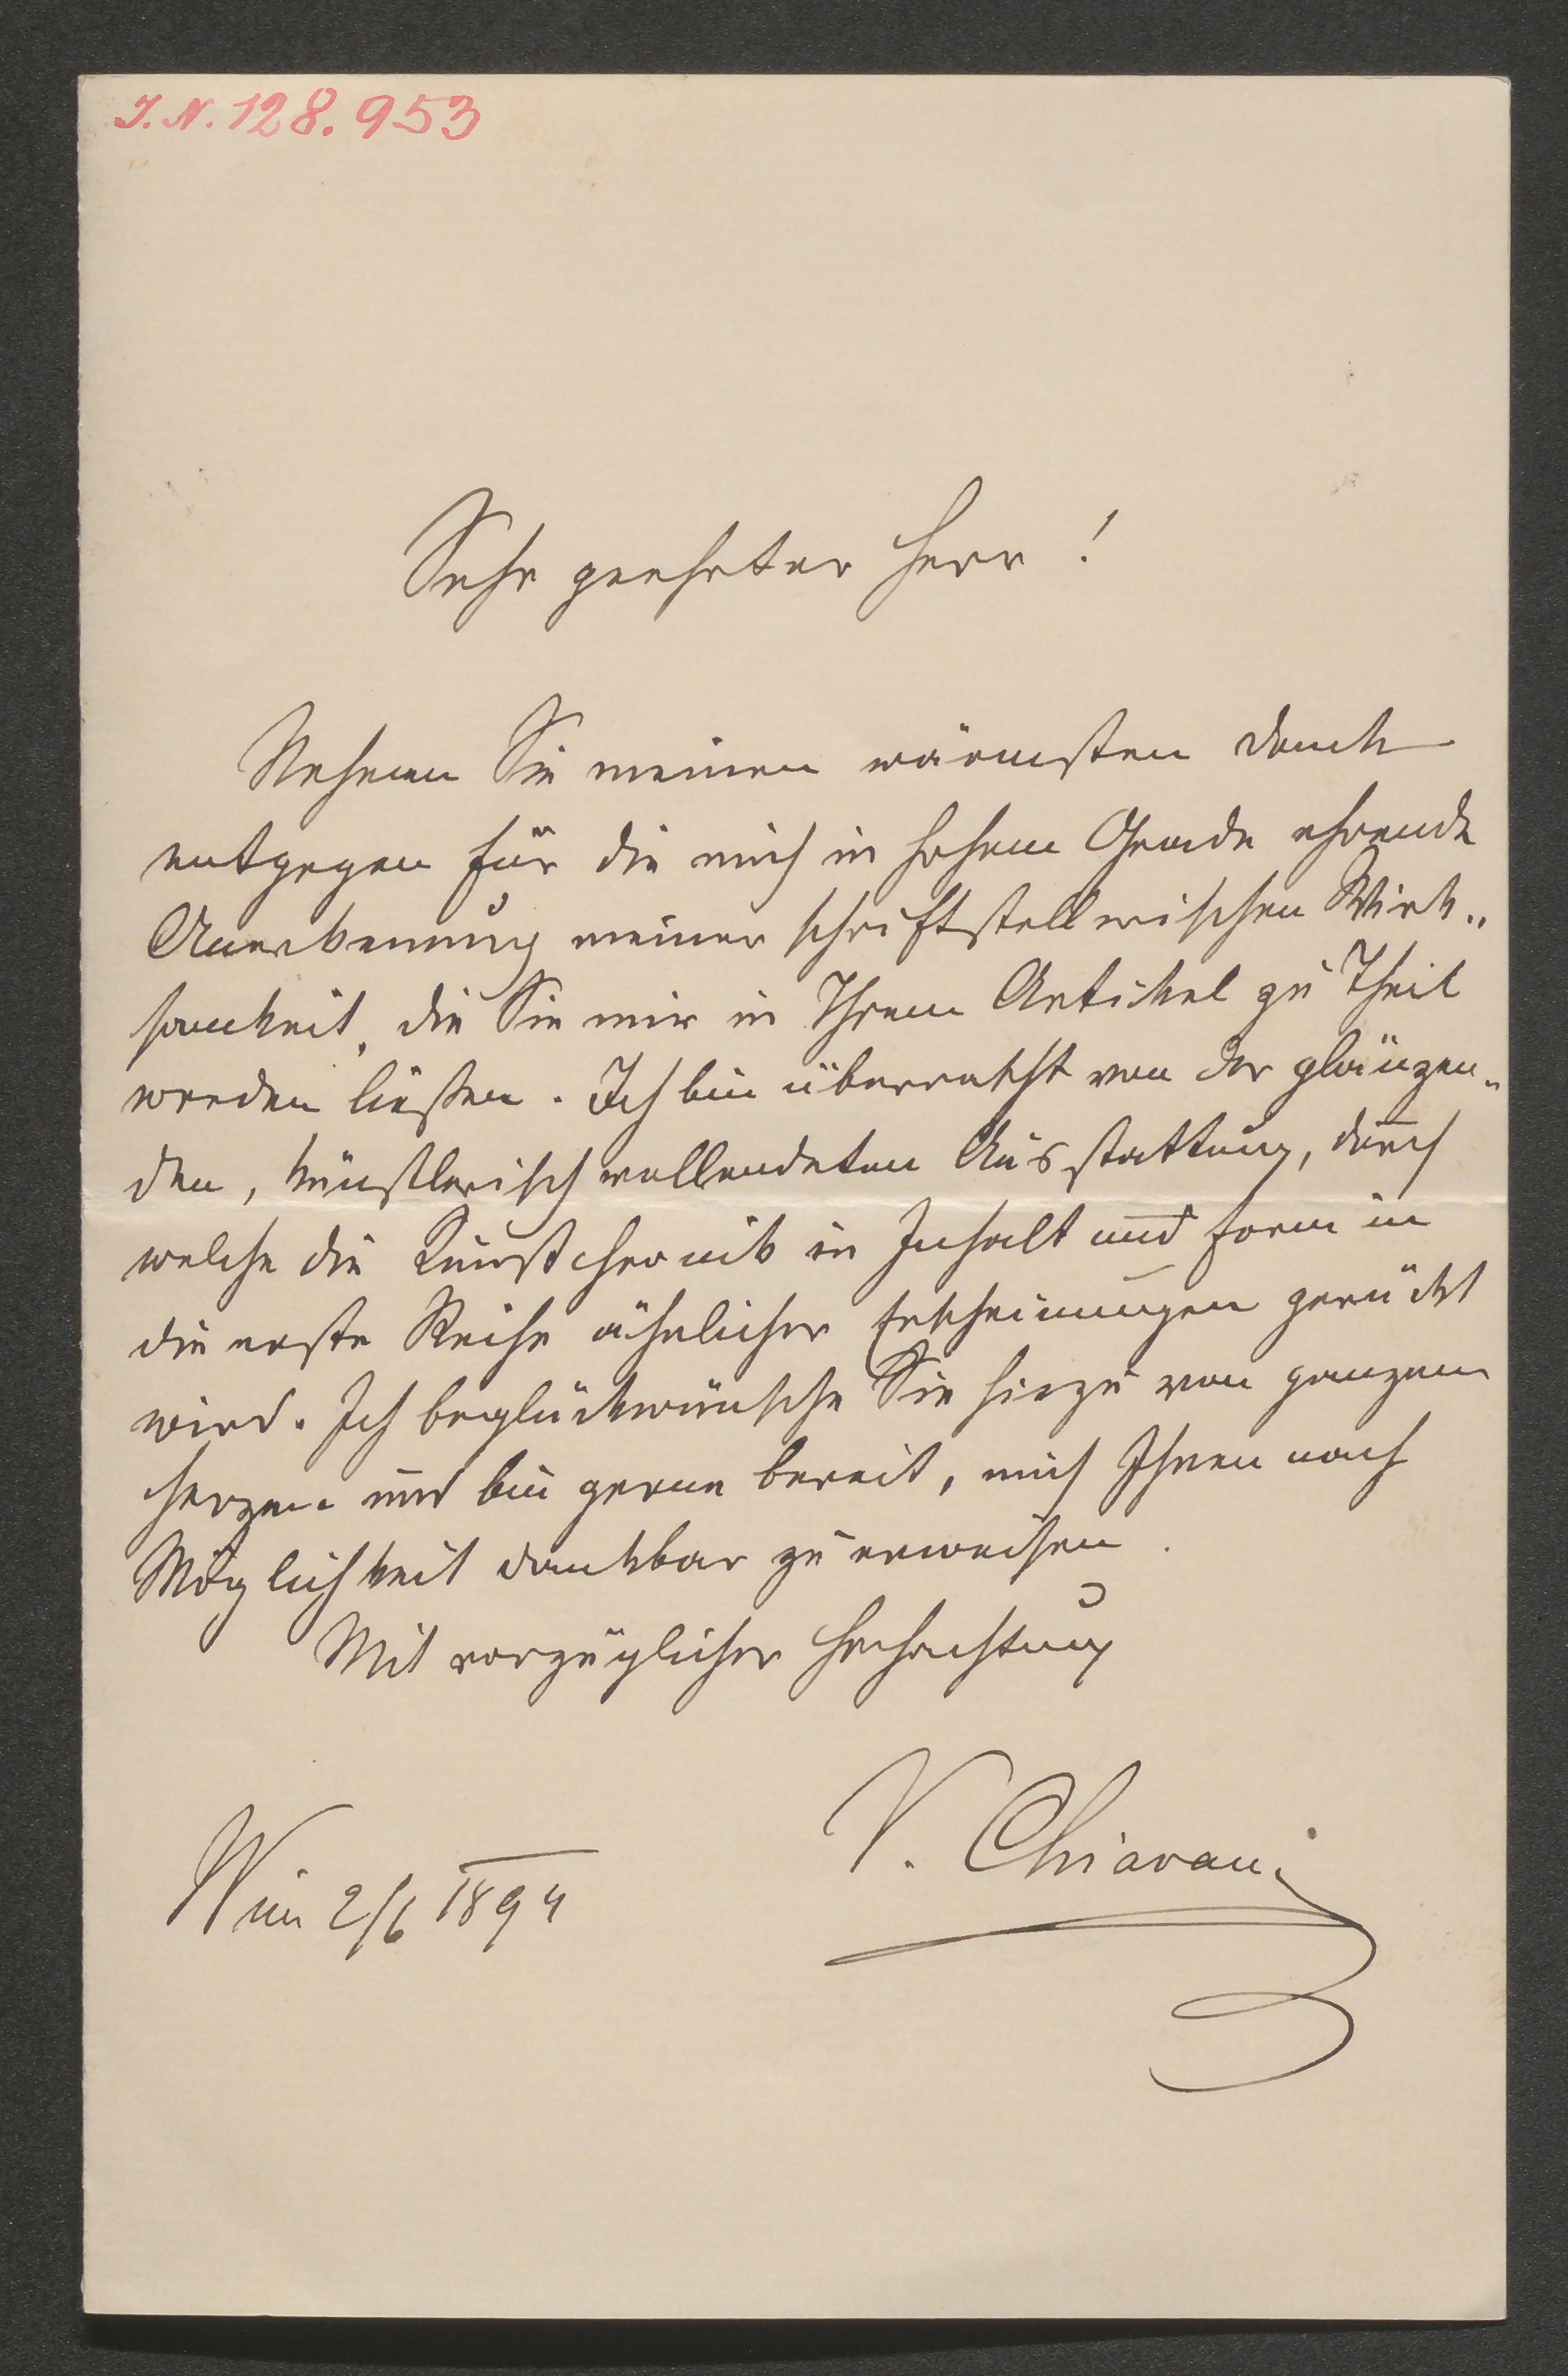 I. N. 128.953
Sehr geehrter Herr !
Nehmen Sie meinen wärmsten Dank
entgegen für die mich in hohem Grade ehrende
Anerkennung meiner schriftstellerischen Wirk„
samkeit, die Sie mir in Ihrem Artikel zu Theil
werden ließen. Ich bin überrascht von der glänzen„
den, künstlerisch vollendeten Ausstattung, durch
welche die Kunstchronik in Inhalt und Form in
die erste Reihe ähnlicher Erscheinungen gerückt
wird. Ich beglückwünsche Sie hiezu von ganzem
Herzen und bin gerne bereit, mich Ihnen nach
Möglichkeit dankbar zu erweisen.
Mit vorzüglicher Hochachtung
V. Chiavacci
Wien 2/6 1894